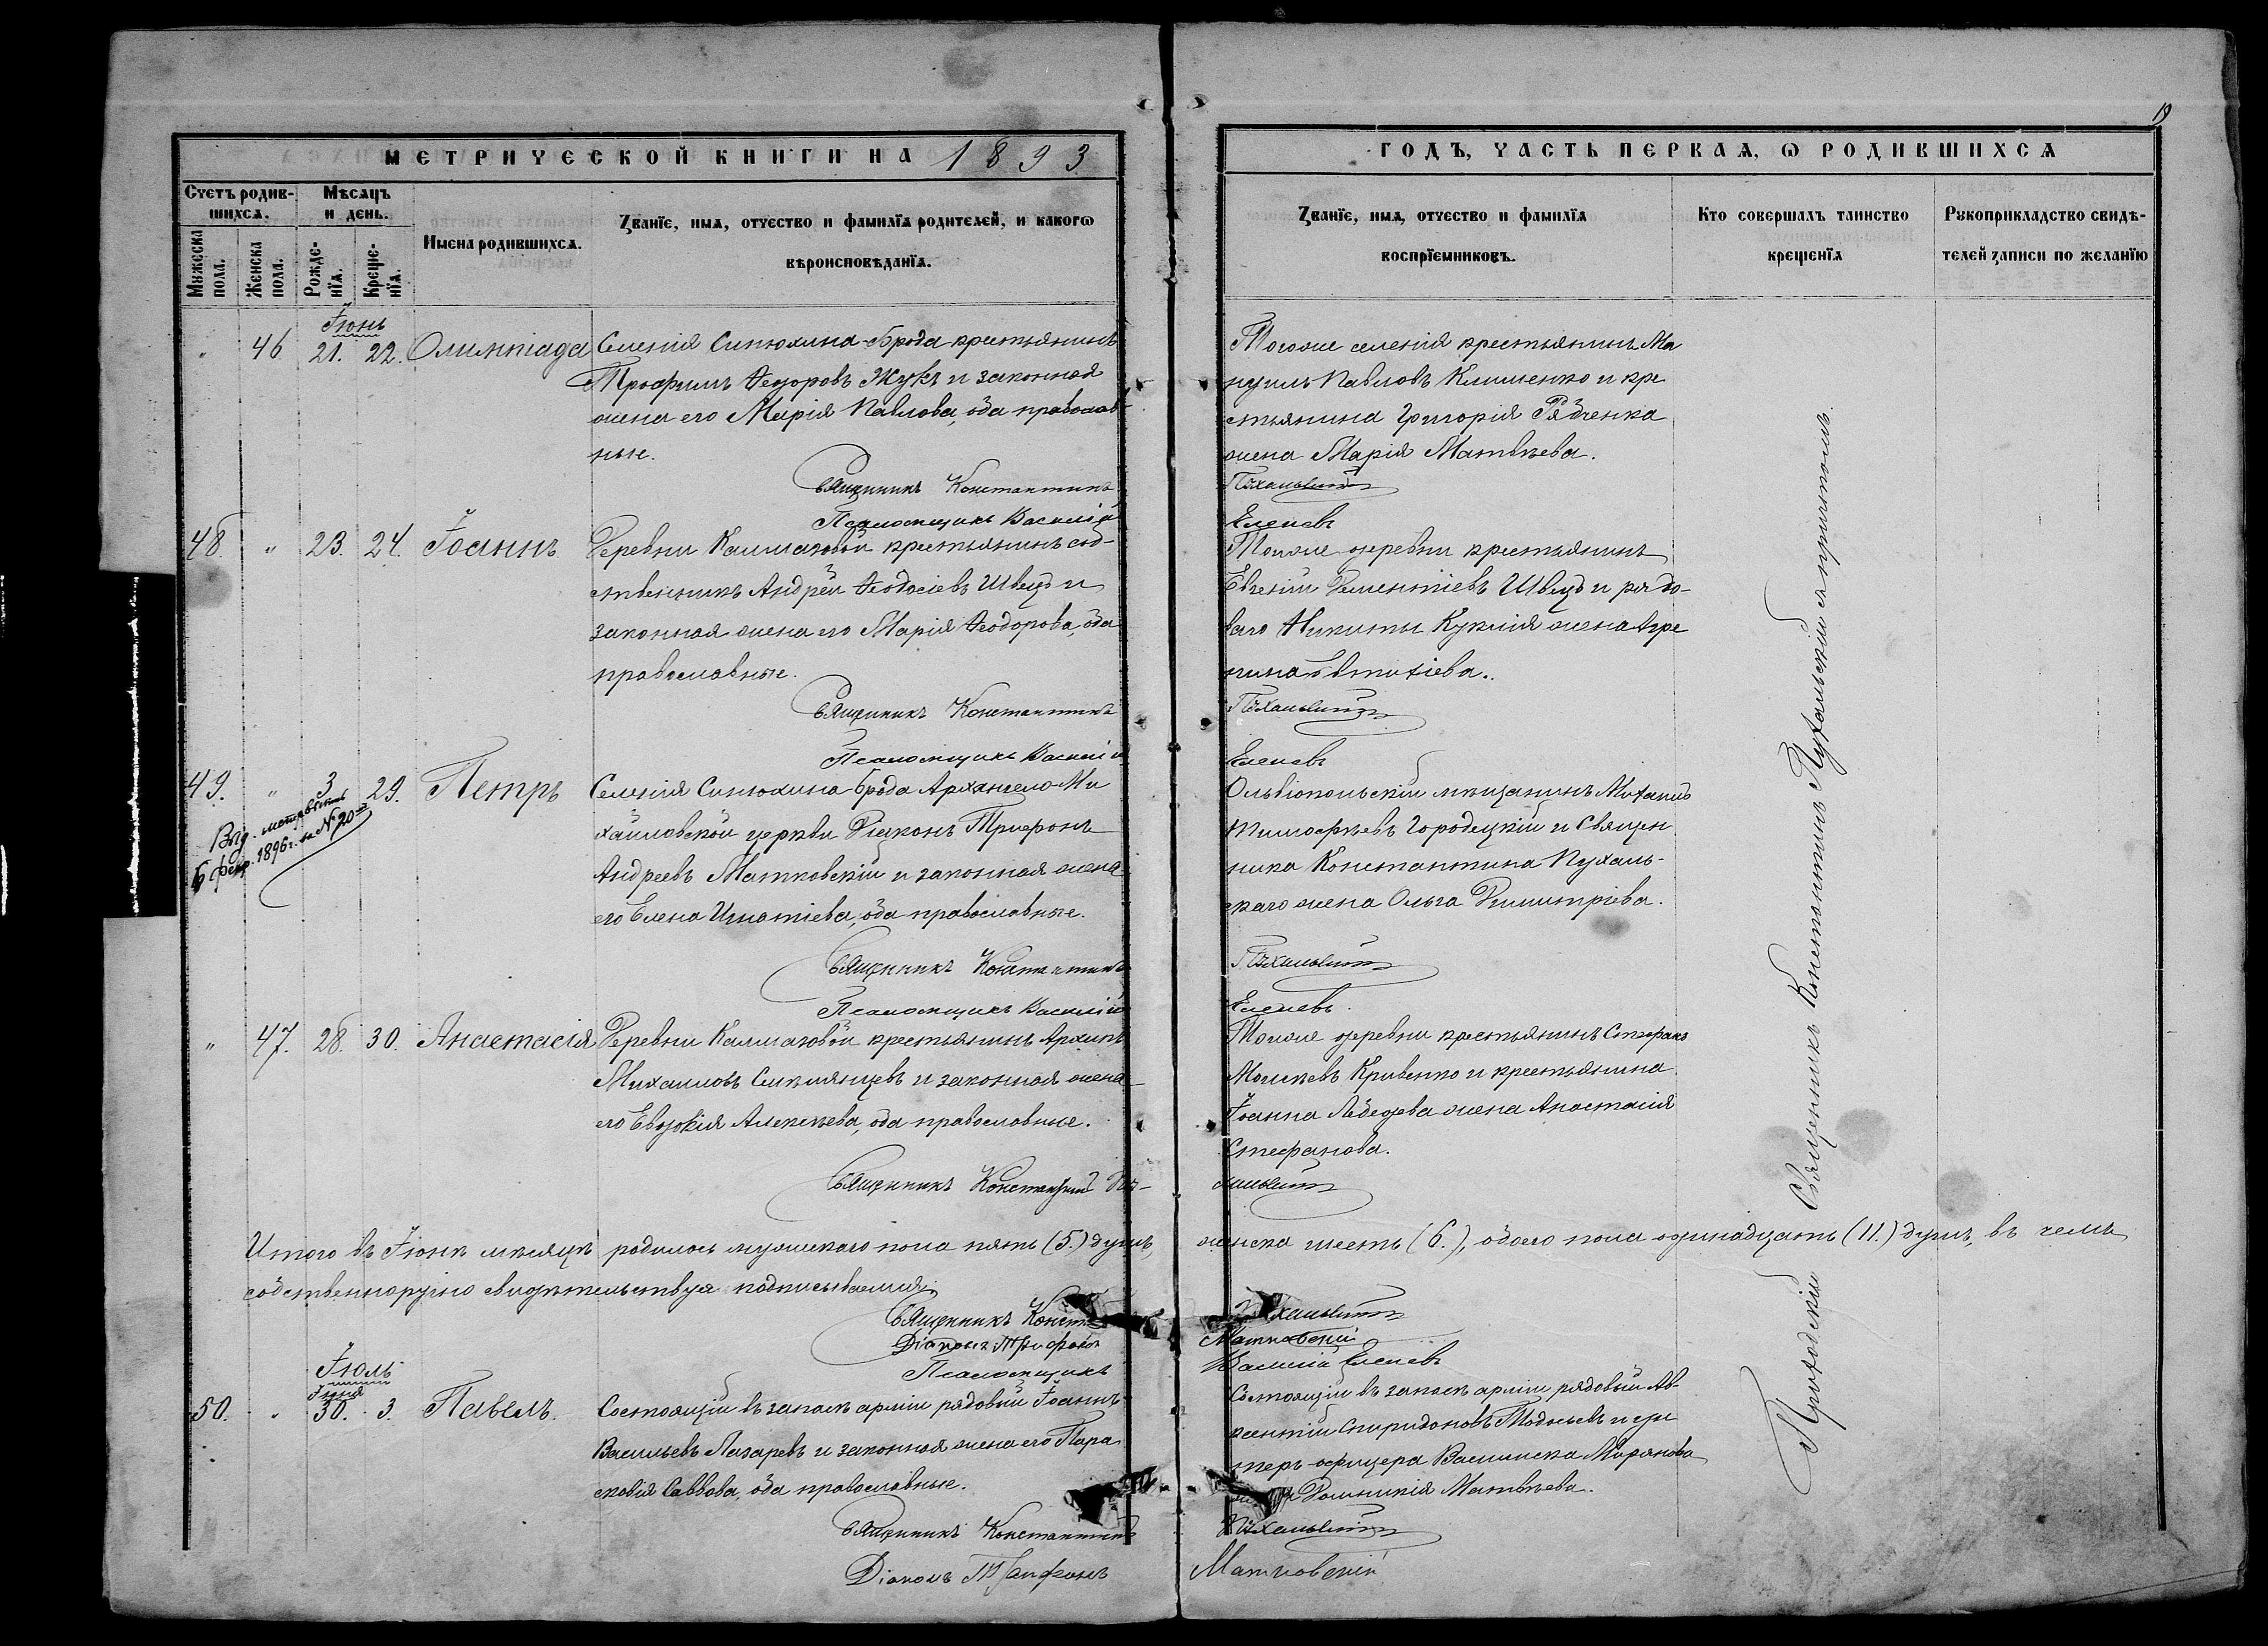 19
МЕТРИЧЕСКОЙ КНИГИ НА 1893
ГОДЪ, ЧАСТЬ ПЕРВАѦ, Ѡ РОДИВШИХСѦ
Счетъ родив-
шихсѧ.
Мѣсѧцъ
и день.
Мужеска
пола.
Женска
пола.
Рожде-
нїѧ.
Креще-
нїѧ.
Имена родившихсѧ.
Званїе, имѧ, отчество и фамилїѧ родителей, и какогѡ
вѣроисповѣданїѧ.
Званїе, имѧ, отчество и фамилїѧ
воспрїемниковъ.
Кто совершалъ таинство
крещенїѧ
Рукоприкладство свидѣ-
телей записи по желанїю
Іюнь
" 46 21. 22. Олимпіада
Селенія Синюхина-Брода крестьянинъ
Трофимъ Ѳедоровъ Жукъ и законная
жена его Марія Павлова, оба православ-
ные.
Священникъ Константинъ
Псаломщикъ Василій
Тогоже селенія крестьянинъ Ма
нуилъ Павловъ Клименко и кре
стьянина Григорія Рябченка
жена Марія Матвѣева.
Пухальскій
Еленевъ
48. " 23. 24. Іоаннъ.
Деревни Калмазовой крестьянинъ соб-
ственникъ Андрей Ѳеодосіевъ Швецъ и
законная жена его Марія Ѳеодорова, оба
православные.
Священникъ Константинъ
Псаломщикъ Василій
Тойже деревни крестьянинъ
Евгеній Дементіевъ Швецъ и рядо-
ваго Никиты Куклія жена Агре
пина Евтихіева.
Пухальскій
Еленевъ
49. " 3 29. Петръ
Выд. метрвыпись
6 февр. 1896 г. за № 20
Селенія Синюхина-Брода Архангело-Ми
хайловской церкви Діаконъ Трифонъ
Андреевъ Матковскій и законная жена
его Елена Игнатіева, оба православные.
Священникъ Константинъ
Псаломщикъ Василій
Ольвіопольскій мѣщанинъ Михаилъ
Тимофѣевъ Городецкій и Священ
ника Константина Пухаль-
скаго жена Ольга Димитріева.
Пухальскій
Еленевъ.
" 47. 28. 30. Анастасія
Деревни Калмазовой крестьянинъ Архипъ
Михаиловъ и законная жена
его Евдокія Алексѣева, оба православные.
Священникъ Константинъ Пу-
Тойже деревни крестьянинъ Стефанъ
Кривенко и крестьянина
Іоанна Лебедева жена Анастасія
Стефанова.
хальскій
Итого въ Іюнѣ мѣсяцѣ родилось мужескаго пола пять (5.) душъ,
женска шесть (6.), обоего пола одинадцать (11.) душъ, въ чемъ
собственноручно свидѣтельствуя подписываемся:
Священникъ Конст
Діаконъ Трифонъ
Псаломщикъ
Пухальскій
Матковскій
Василій Еленевъ
Іюль
Іюня
50. " 30. 3. Павелъ.
Состоящій въ запасѣ арміи рядовый Іоаннъ
Васильевъ Лазаревъ и законная жена его Пара
скевія Саввова, оба православные.
Священникъ Константинъ
Діаконъ Трифонъ
Состоящій въ запасѣ арміи рядовый Ав-
ксентій Спиридоновъ и ун
теръ-офицера Василиска
жена Домникія Матвѣева.
Пухальскій
Матковскій
Приходскій Священникъ Константинъ Пухальскій съ причтомъ.